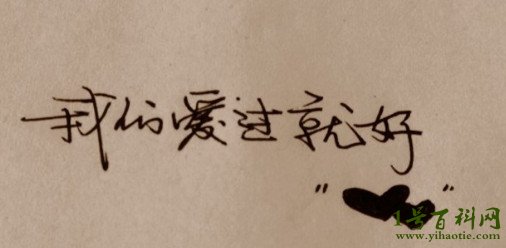 我们爱过就好
"❤❤"
1号百科网
www.yihaotie.com